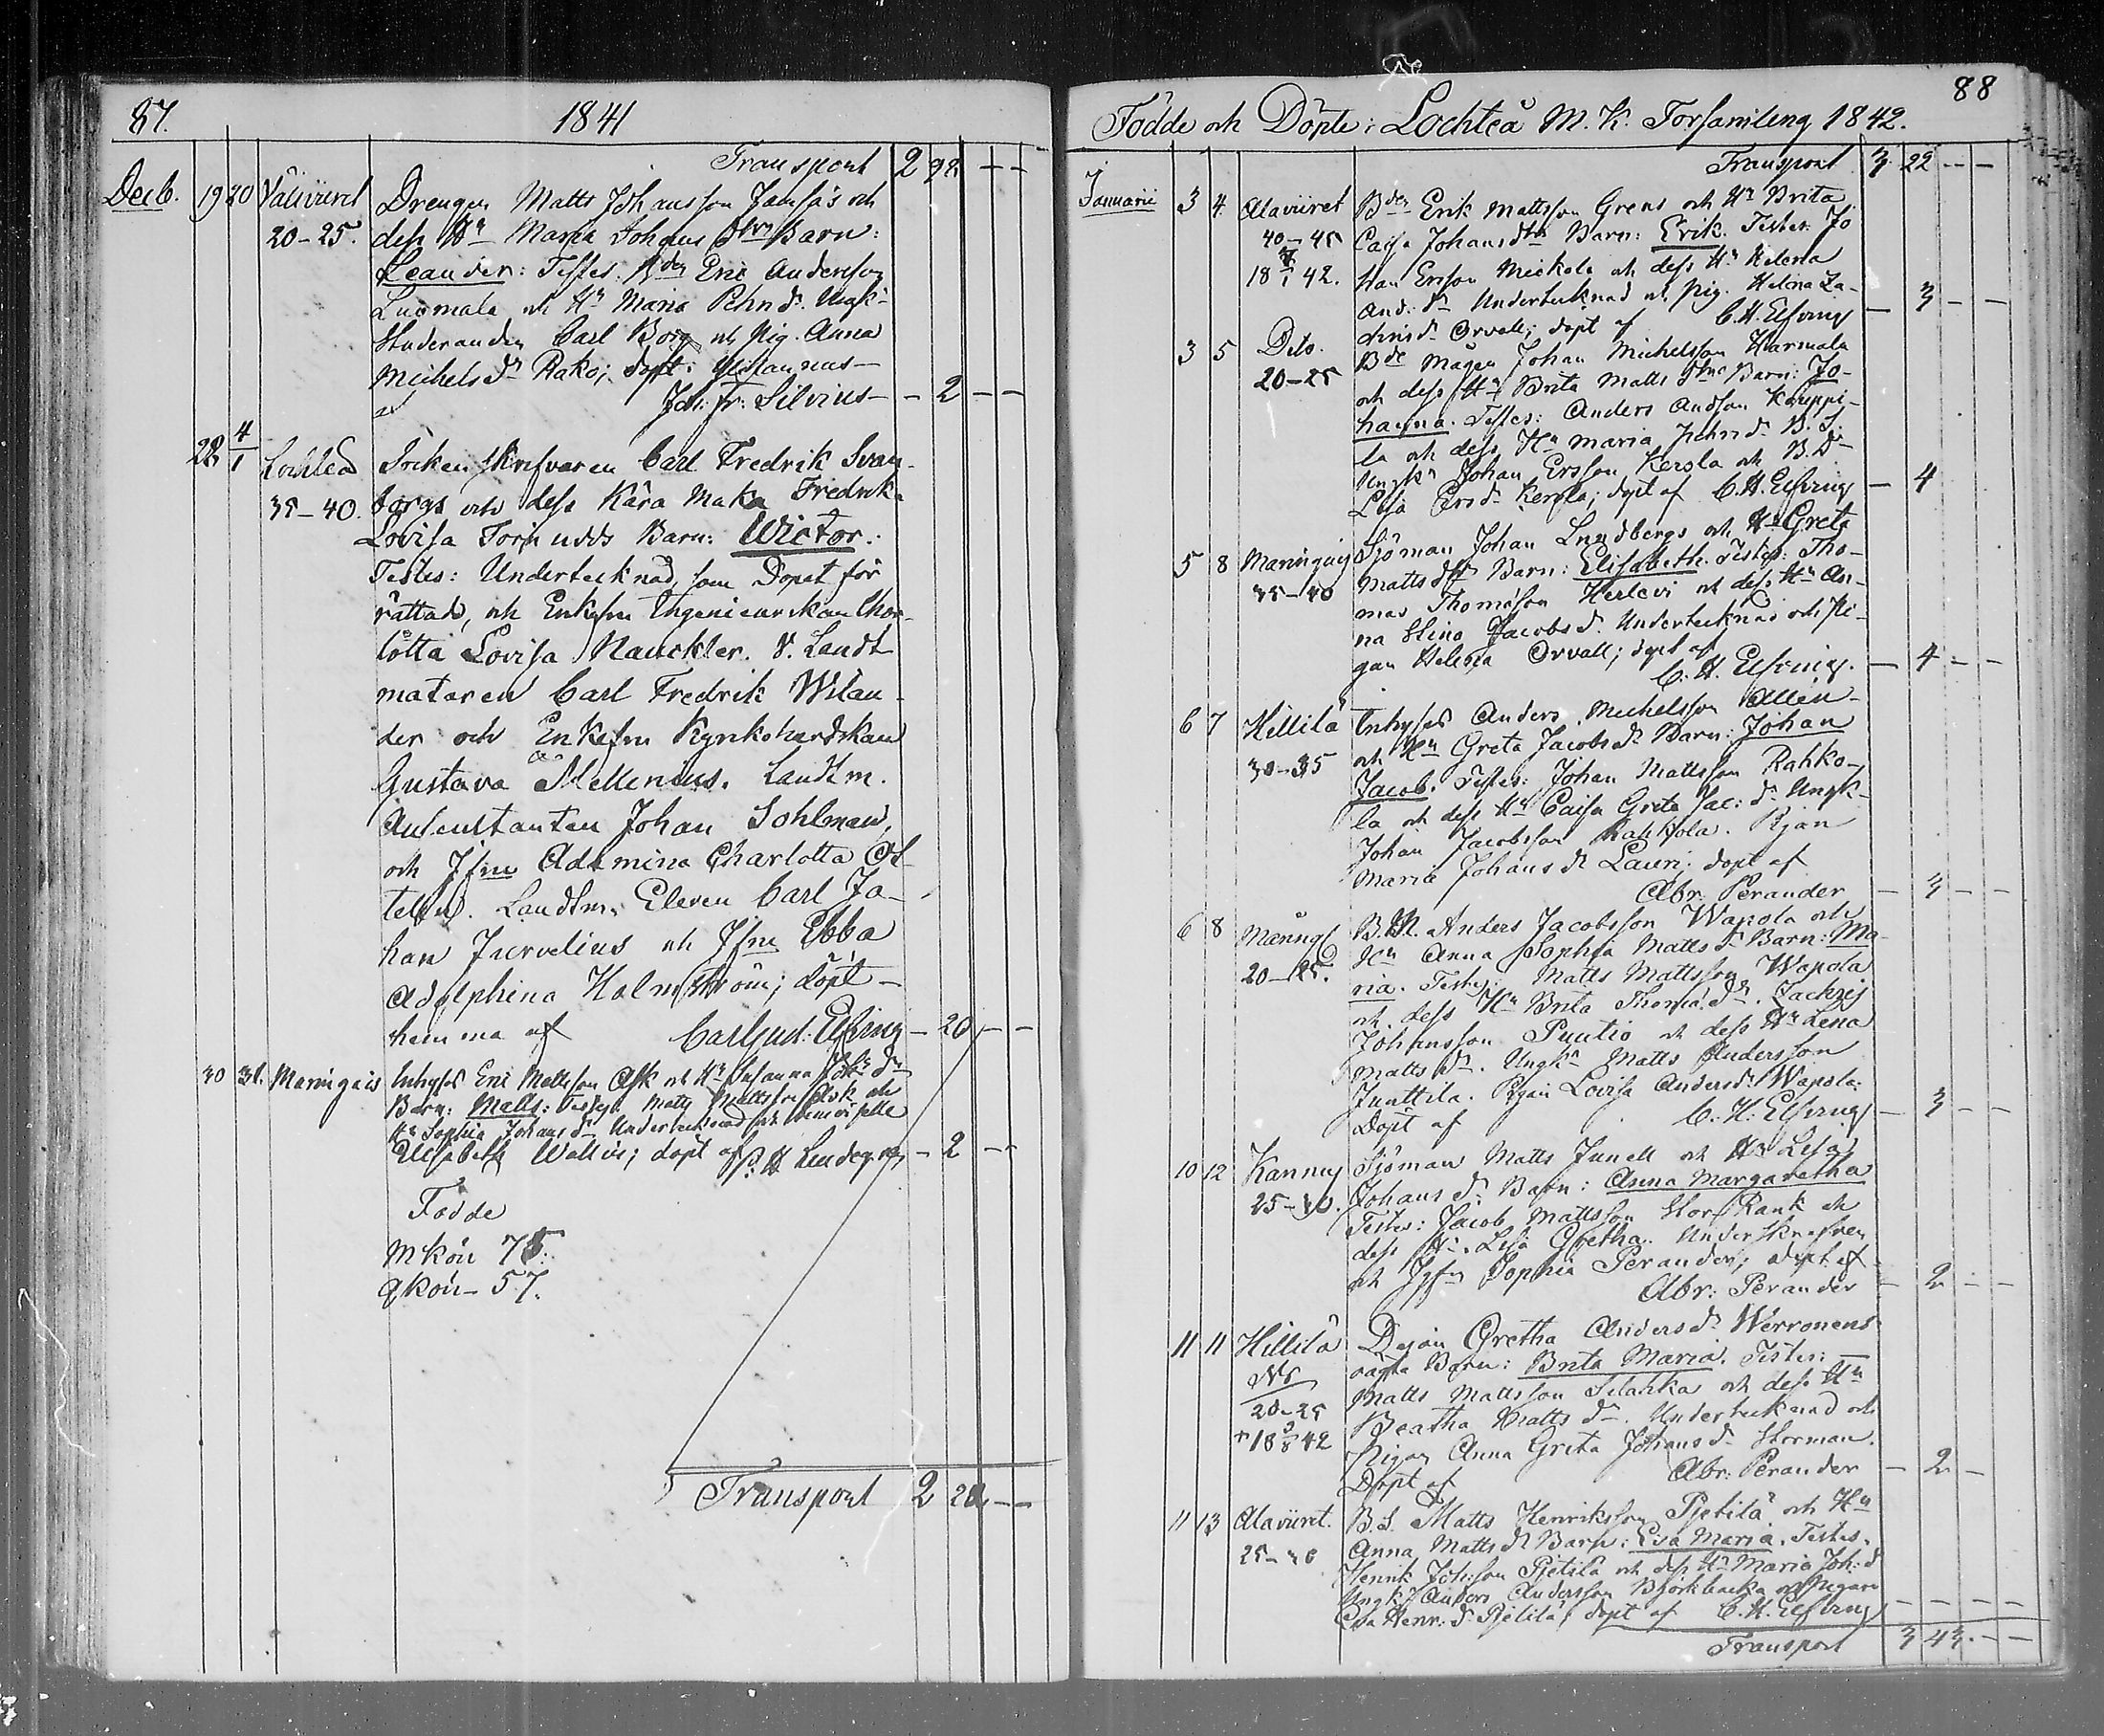 87. 1841
Transport 2 98 - -
Decb. 19 20 Väliviiret Drengen Matts Johansson Jamsäs och
20-25. dess Hu Maria Johans dtrs Barn:
Leander: Testes: Bden Eric Andersson
Luomala och Hu Maria Pehrsd. Ungk:
Studeranden Carl Borg och Pig. Anna
Michelsd. Rako; döpt:
Joh: Fr: Silvius - - 2 - -
28 4/1 Lochteå Sockenskrifvaren Carl Fredrik Svan-
35-40. borgs och dess Kära Maka Fredrika
Lovisa Tornudds Barn: Wictor:
Testes: Undertecknad, som Dopet för
rättade, och Enkefru Ingenieurskan Char-
lotta Lovisa Nauckler. V. Landt
mätaren Carl Fredrik Wilan-
der och Enkefru Kyrkoherdskan
Gustava Mellenius. Landtm.
Auscultanten Johan Sohlman,
och Jfru Adamina Charlotta Ot-
telin. Landtm. Eleven Carl Jo-
han Jurvelius och Jfru Ebba
Adolphina Holmström; döpt
hemma af Carl Gust: Elfving - 20 - -
30 31. Maringais Inhyses Eric Mattsson Ask och Hu Susanna Joh: dr
Barn: Matts: Testes: Matts Mattsson Ask och
Hu Sophia Johansd. Undertecknad och Demoiselle
Elisabeth Wallin; döpt af P. H. Lindegren - 2 - -
Födde
Mkön 75.
Qkön - 57.
Transport 2 20 - -
88
Födde och Döpte i Lochteå M. K. Forsamleng 1842.
Transport 3 22 - -
Januarii 3 4 Alaviiret Bden Erik Mattsson Grens och Hu Brita
40-45 Caisa Johansdtrs Barn: Erik. Testes: Jo
18 42. han Ersson Mickola och dess Hu Helena
And: dr Undertecknad och Pig. Helena Za-
chrisd. Orvall; döpt af C. H. Elfving - 3 - -
3 5 Dito. Bde Mågen Johan Michelsson Harmala
20-25 och dess Hu Brita Matts dtrs Barn: Jo-
hanna. Testes: Anders Andsson Kauppi-
la och dess Hu Maria Johansd. B. S.
Ungkn Johan Ersson Kerola och B. D.
Lisa Ersd. Kerola; döpt af C. H. Elfving - 4
5 8 Maringais Sjöman Johan Lundbergs och Hu Greta
35-40 Matts dtrs Barn: Elisabeth. Testes: Tho-
mas Thomasson Herlevi och dess Hu An-
na Stina Jacobsd. Undertecknad och Pi-
gan Helena Orvall; döpt af
C. H. Elfving. - 4 - -
6 7 Hillilä Inhyses Anders Michelsson Allén
30-35 och Hu Greta Jacobsd. Barn: Johan
Jacob. Testes: Johan Mattsson Rahko-
la och dess Hu Caisa Greta Jac: dr Ungk-
Johan Jacobsson Rahkola. Pigan
Maria Johans dr Lauri: döpt af
Abr. Perander - 3 - -
6 8 B. M. Anders Jacobsson Wapola och
20-25. Hu Anna Sophia Mattsd. Barn: Ma-
ria. Testes: Matts Mattsson Wapola
och dess Hu Brita Thomasd. Zachris
Johansson Puutio och dess Hu Lena
Matts dr. Ungkn Matts Andersson
Junttila. Pigan Lovisa Andersd. Wapola:
Döpt af C. H. Elfving - 3 - -
10 12 Kannus Sjöman Matts Junell och Hu Lisa
25-30. Johans dr Barn: Anna Margaretha
Testes: Jacob Mattsson Stor Rank och
dess Hu Lisa Gretha. Underskrefven
och Jgfru Sophia Perander; döpt af
Abr: Perander - 2 - -
11 11 Hillilä Dejan Gretha Andersd. Werronens
oägta Barn: Brita Maria. Testes:
20-25 Matts Mattsson Silahka och dess Hu
+18 3/8 42 Beatha Matts dr. Undertecknad och
Pigan Anna Greta Johansd. Storman.
Döpt af Abr: Perander - 2 -
11 13 Alaviiret. B. S. Matts Henriksson Pjetilä och Hu
25-30 Anna Mattsd Barn: Lisa Maria. Testes.
Henrik Johsson Pjetilä och dess Hu Maria Joh: d
Ungk: Anders Andersson Björkbacka och Pigan
Lisa Henr: d. Pjetilä, döpt af C. H. Elfving - - - -
Transport 3 43. - -